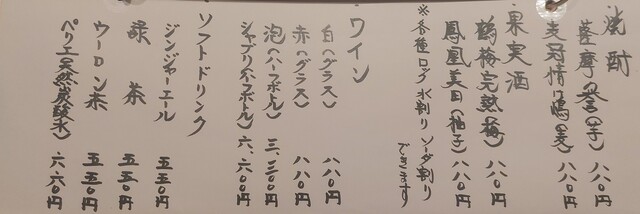 焼酎
薩摩の誉(芋) 八八〇円
八八〇円
果実酒
鶴梅完熟(梅) 八八〇円
鳳凰美田(柚子) 八八〇円
※各種ロック 水割り ソーダ割り できます
ワイン
白(グラス) 八八〇円
赤(グラス) 八八〇円
泡(ハーフボトル) 三、三〇〇円
シャブリ(ハーフボトル) 六、六〇〇円
ソフトドリンク
ジンジャーエール 五五〇円
緑茶 五五〇円
ウーロン茶 五五〇円
ペリエ(天然炭酸水) 六六〇円